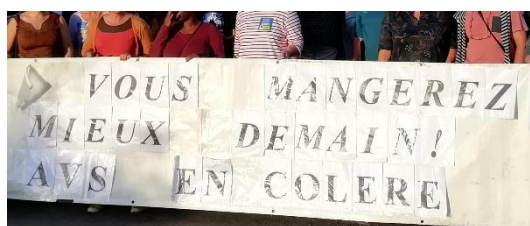 VOUS MANGEREZ
MIEUX DEMAIN!
AVS EN COLERE